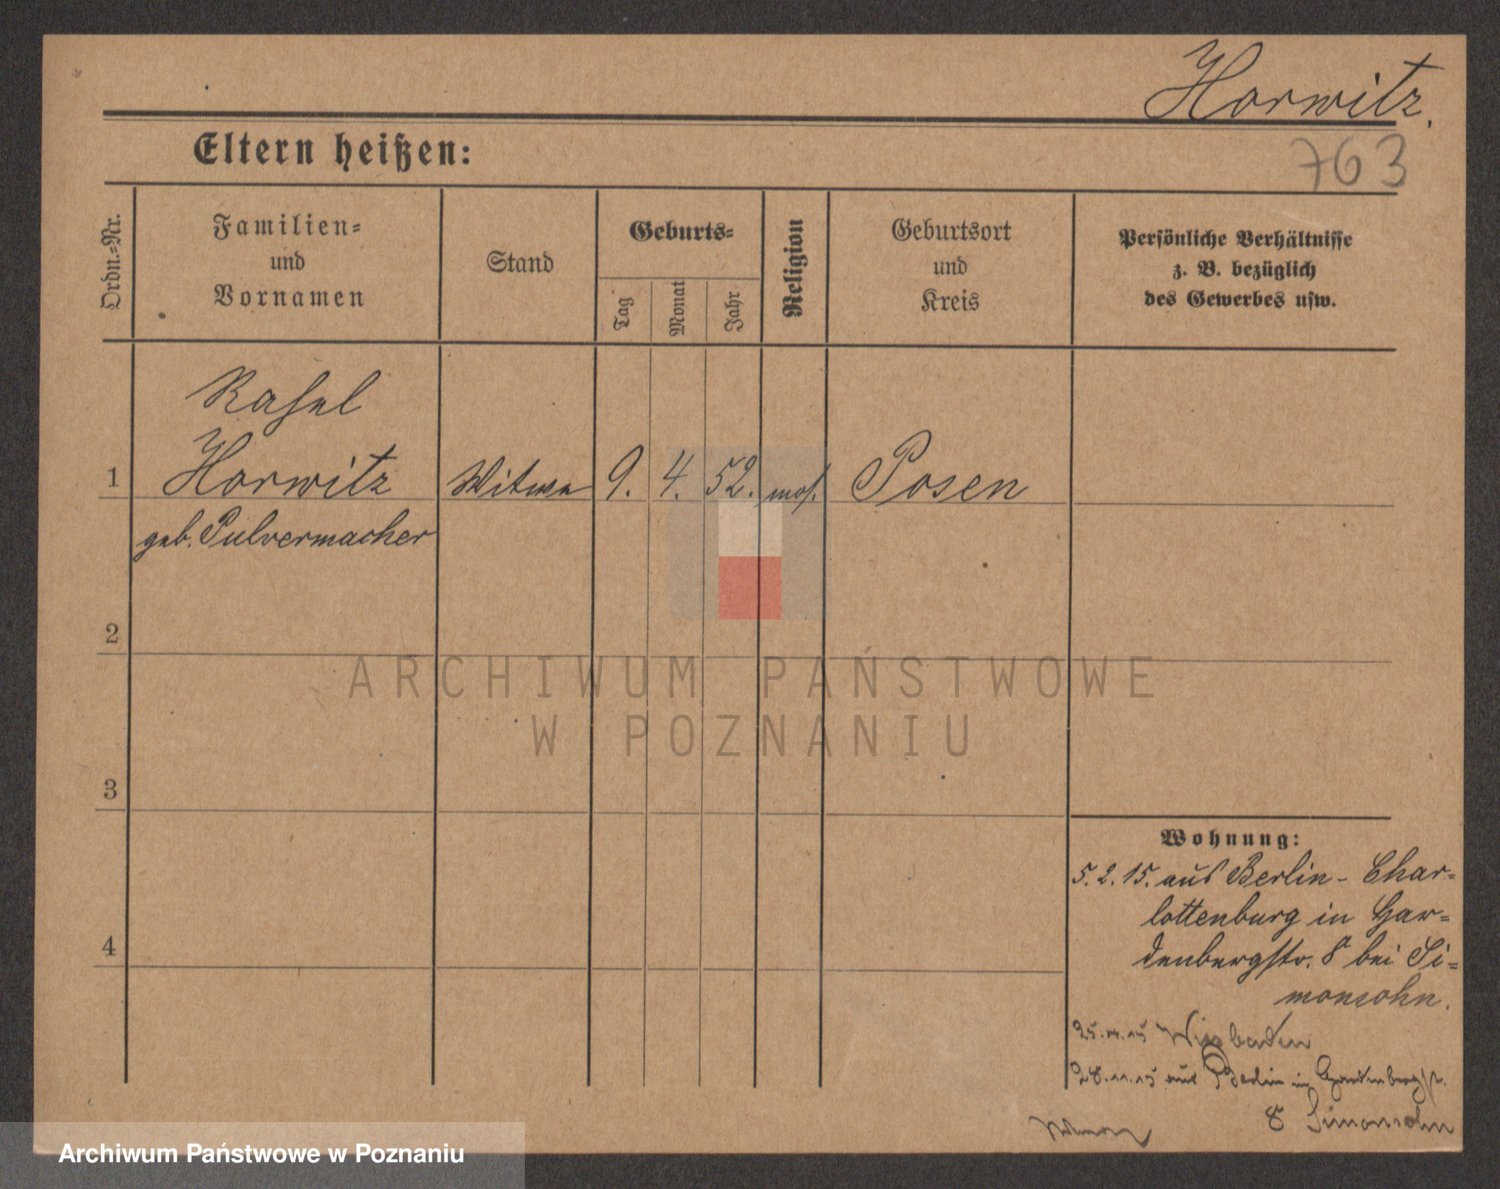 Horwitz.
763
Eltern heißen:
Ordn.-Nr.
Familien-
und
Vornamen
Stand
Geburts-
Tag
Monat
Jahr
Religion
Geburtsort
und
Kreis
Persönliche Verhältnisse
z. B. bezüglich
des Gewerbes usw.
Rahel
1 Horwitz Witwe 9. 4. 52. mos. Posen
geb. Pulvermacher
2
3
4
Wohnung:
5. 2. 15. aus Berlin - Char-
lottenburg in Har-
denbergstr. 8 bei Si-
monsohn.
Wiesbaden
28.11.15 aus Berlin in Hardenbergstr.
8 Simonsohn
ARCHIWUM PAŃSTWOWE
W POZNANIU
Archiwum Państwowe w Poznaniu